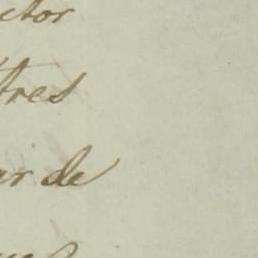 ctor
tres
ar de